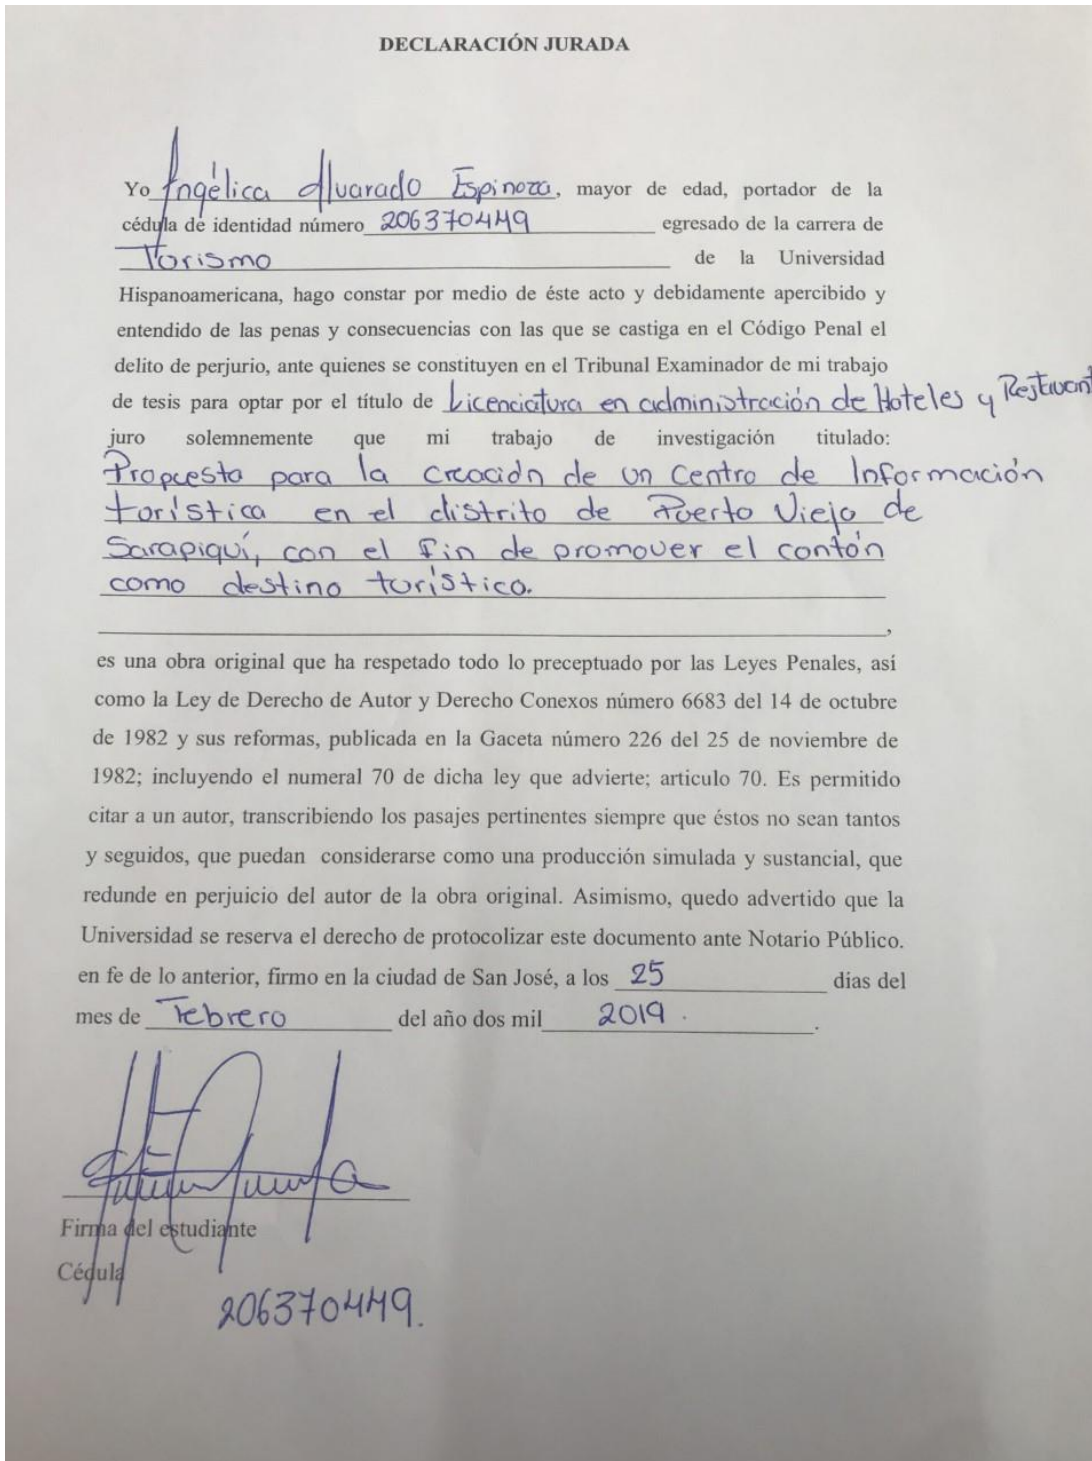 DECLARACIÓN JURADA
Yo Angélica Alvarado Espinoza, mayor de edad, portador de la
cédula de identidad número 206370449 egresado de la carrera de
Turismo de la Universidad
Hispanoamericana, hago constar por medio de éste acto y debidamente apercibido y
entendido de las penas y consecuencias con las que se castiga en el Código Penal el
delito de perjurio, ante quienes se constituyen en el Tribunal Examinador de mi trabajo
de tesis para optar por el título de Licenciatura en administración de Hoteles y Restaurant
juro solemnemente que mi trabajo de investigación titulado:
Propuesta para la creación de un Centro de Información
turística en el distrito de Puerto Viejo de
Sarapiquí, con el fin de promover el cantón
como destino turístico.
,
es una obra original que ha respetado todo lo preceptuado por las Leyes Penales, así
como la Ley de Derecho de Autor y Derecho Conexos número 6683 del 14 de octubre
de 1982 y sus reformas, publicada en la Gaceta número 226 del 25 de noviembre de
1982; incluyendo el numeral 70 de dicha ley que advierte; articulo 70. Es permitido
citar a un autor, transcribiendo los pasajes pertinentes siempre que éstos no sean tantos
y seguidos, que puedan considerarse como una producción simulada y sustancial, que
redunde en perjuicio del autor de la obra original. Asimismo, quedo advertido que la
Universidad se reserva el derecho de protocolizar este documento ante Notario Público.
en fe de lo anterior, firmo en la ciudad de San José, a los 25 dias del
mes de Febrero del año dos mil 2019.
Firma del estudiante
Cédula
206370449.